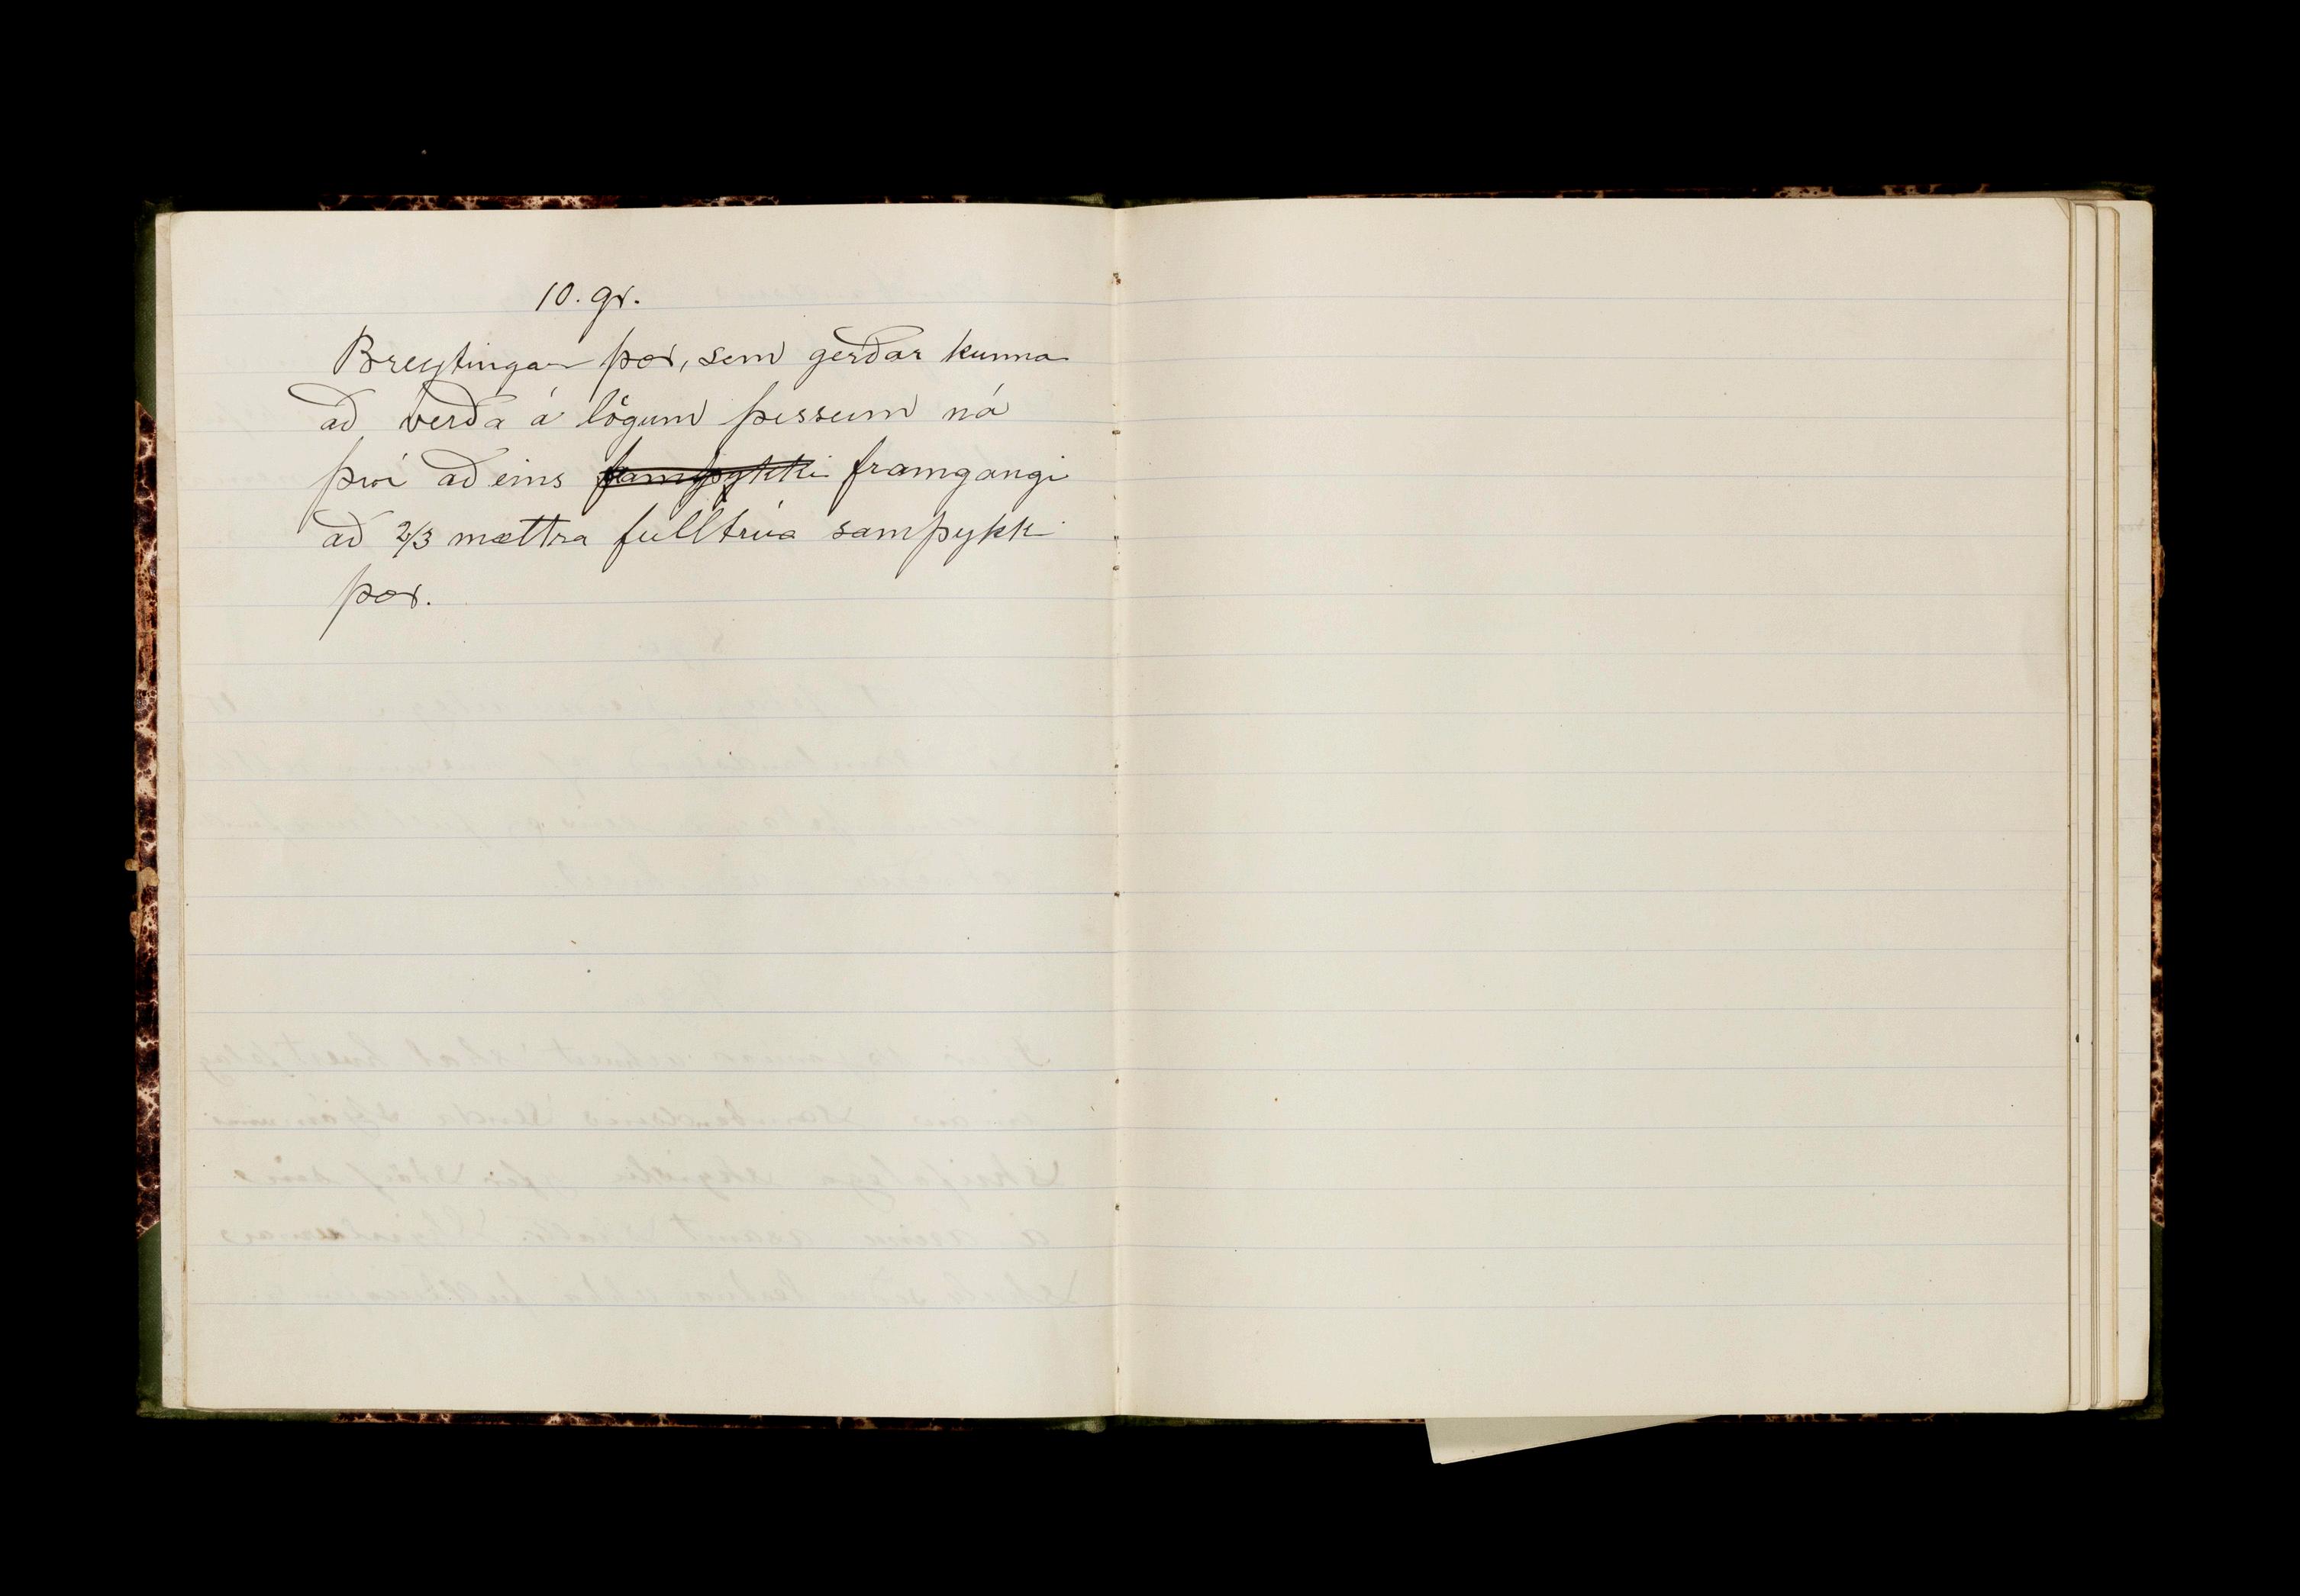 10. gr.
Breytingar þær, sem gerðar kunna
að verða á lögum þessum ná
því að eins samþykki framgangi
að 2/3 mættra fulltrúa samþykki
þær.